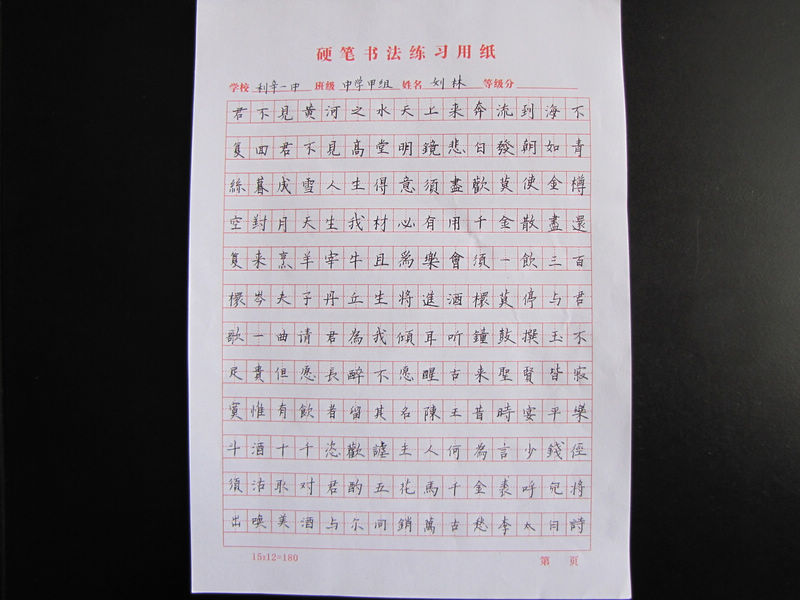 硬笔书法练习用纸
学校 利辛一中 班级 中学甲组 姓名 刘林 等级分
君不見黄河之水天上来奔流到海不
复回君不見高堂明鏡悲白發朝如青
絲暮成雪人生得意須盡歡莫使金樽
空對月天生我材必有用千金散盡還
复来烹羊宰牛且為樂會須一飲三百
杯岑夫子丹丘生將進酒杯莫停与君
歌一曲请君為我傾耳听鐘鼓撰玉不
足貴但愿長醉不愿醒古来聖賢皆寂
寞惟有飲者留其名陳王昔時宴平樂
斗酒十千恣歡謔主人何為言少錢径
須沽取对君酌五花馬千金裘呼児將
出喚美酒与尔同銷萬古愁李太白詩
15x12=180
第 页